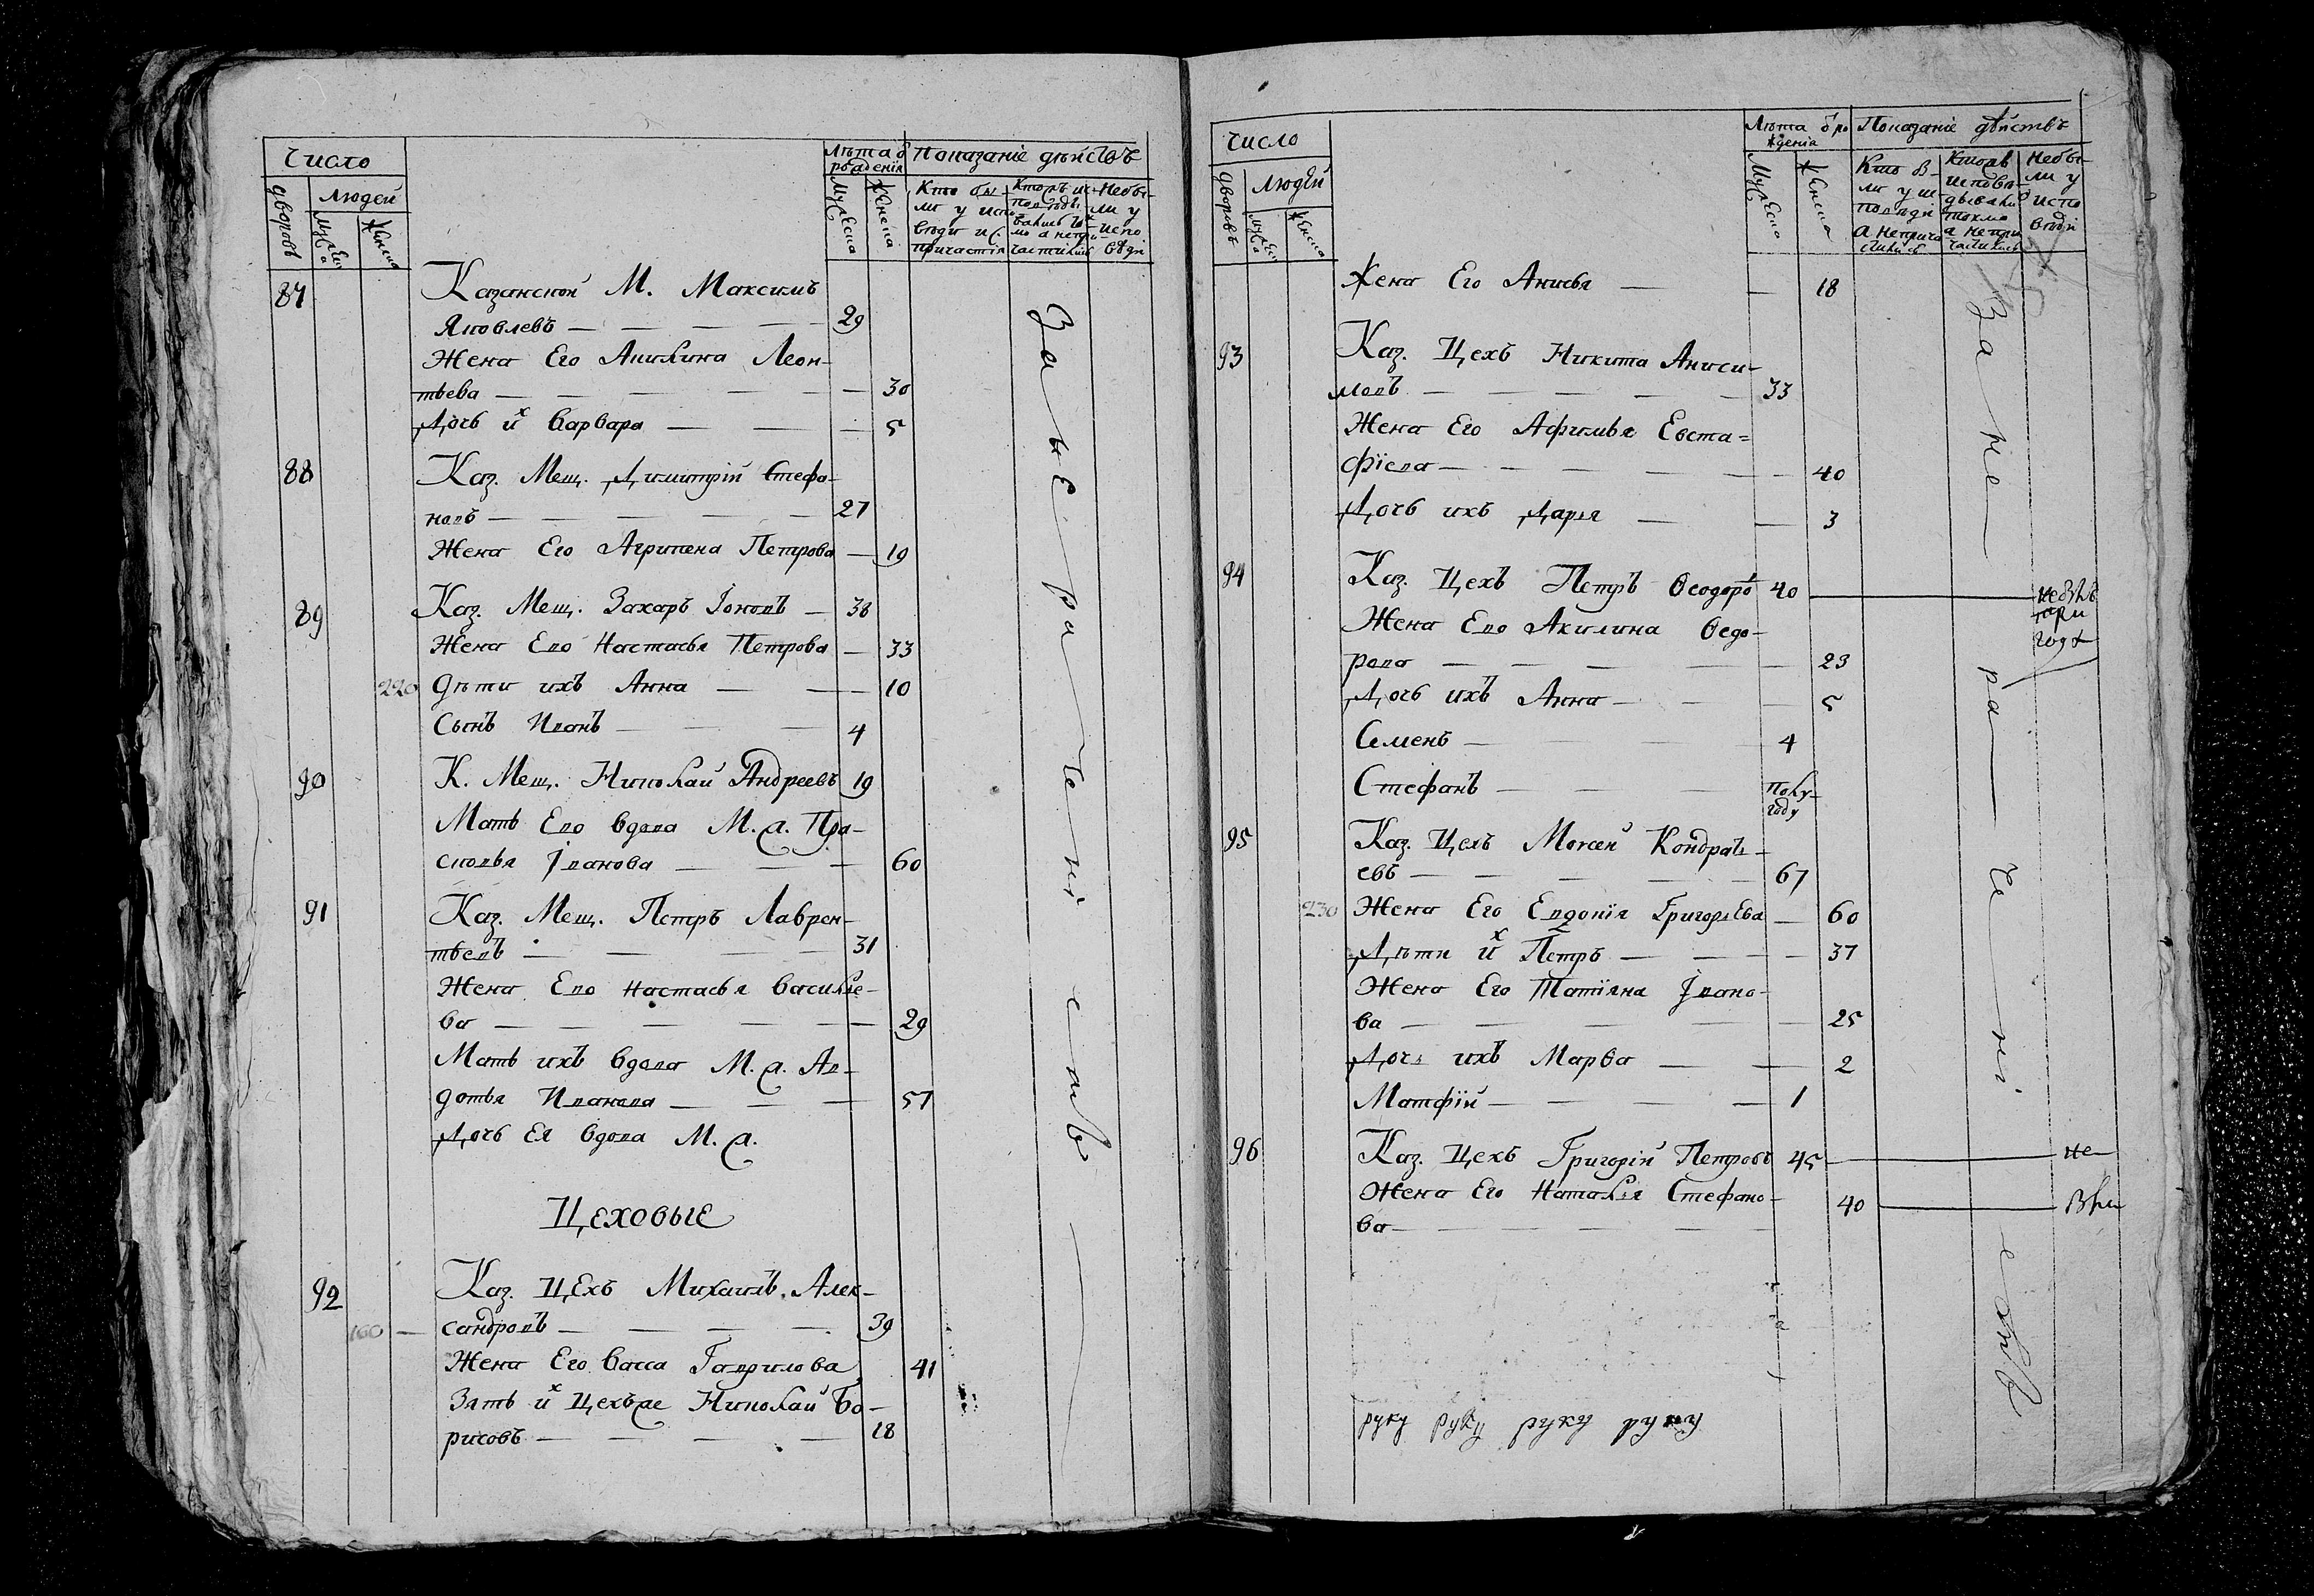 Число
Людей
дворовъ
Мужеска
Женска
Лѣта ѿ рожденія
Мужеска
Женска
Показаніе дѣйствъ
Кто были у исповѣди и С. причастія
Кто исповѣдались токмо а не причастились
Небыли у исповѣди
87
Казанской М. Максимъ
Яковлевъ — — — — 29
Жена Его Акилина Леон-
тьева — — — — — 30
Дочь их Варвара — — — 5
88
Каз. Мещ. Димитрій Стефа-
новъ — — — — — 27
Жена Его Агрипена Петрова — 19
89
Каз. Мещ. Захаръ Іоновъ — 38
Жена Его Настасья Петрова — 33
220 Дѣти ихъ Анна — — — 10
Сынъ Иванъ — — — 4
90
К. Мещ. Николай Андреевъ 19
Мать Его вдова М. а. Пра-
сковья Іванова — — — 60
91
Каз. Мещ. Петръ Лаврен-
тьевъ — — — — 31
Жена Его Настасья Василье-
ва — — — — — 29
Мать ихъ вдова М. а. Ав-
дотья Иванова — — — 57
Дочь Ея вдова М. а.
Цеховые
92
Каз. Цехъ Михаилъ Алек-
160 — сандровъ — — — — 39
Жена Его Васса Гаврилова 41
Зять их Цехъ Николай Бо-
рисовъ — — — — 18
За нерачениемъ
Число
Людей
дворовъ
Мужеска
Женска
Лѣта ѿ рожденія
Мужеска
Женска
Показаніе дѣйствъ
Небыли у исповѣди
Жена Его Анисья — — 18
93
Каз. Цехъ Никита Аниси-
мовъ — — — — — 33
Жена Его Афимья Евста=
фіева — — — — — 40
Дочь ихъ Дарья — — 3
94
Каз. Цехъ Петръ Ѳеодоро 40 —
три
года
Жена Его Акилина Ѳедо-
рова — — — — — 23
Дочь ихъ Анна — — — 5
Семенъ — — — — 4
Стефанъ — — — Полу-
году
95
Каз. Цехъ Мосей Кондрать-
евъ — — — — — 67
230 Жена Его Евдокія Григорьева — 60
Дѣти их Петръ — — — — 37
Жена Его Татіяна Івано-
ва — — — — — 25
Дочь ихъ Марѳа — — 2
Матфій — — — — 1
96
Каз. Цехъ Григорій Петровъ 45 — не
Жена Его Наталья Стефано-
ва — — — — — 40 —
За нерачениемъ
руку руку руку руку